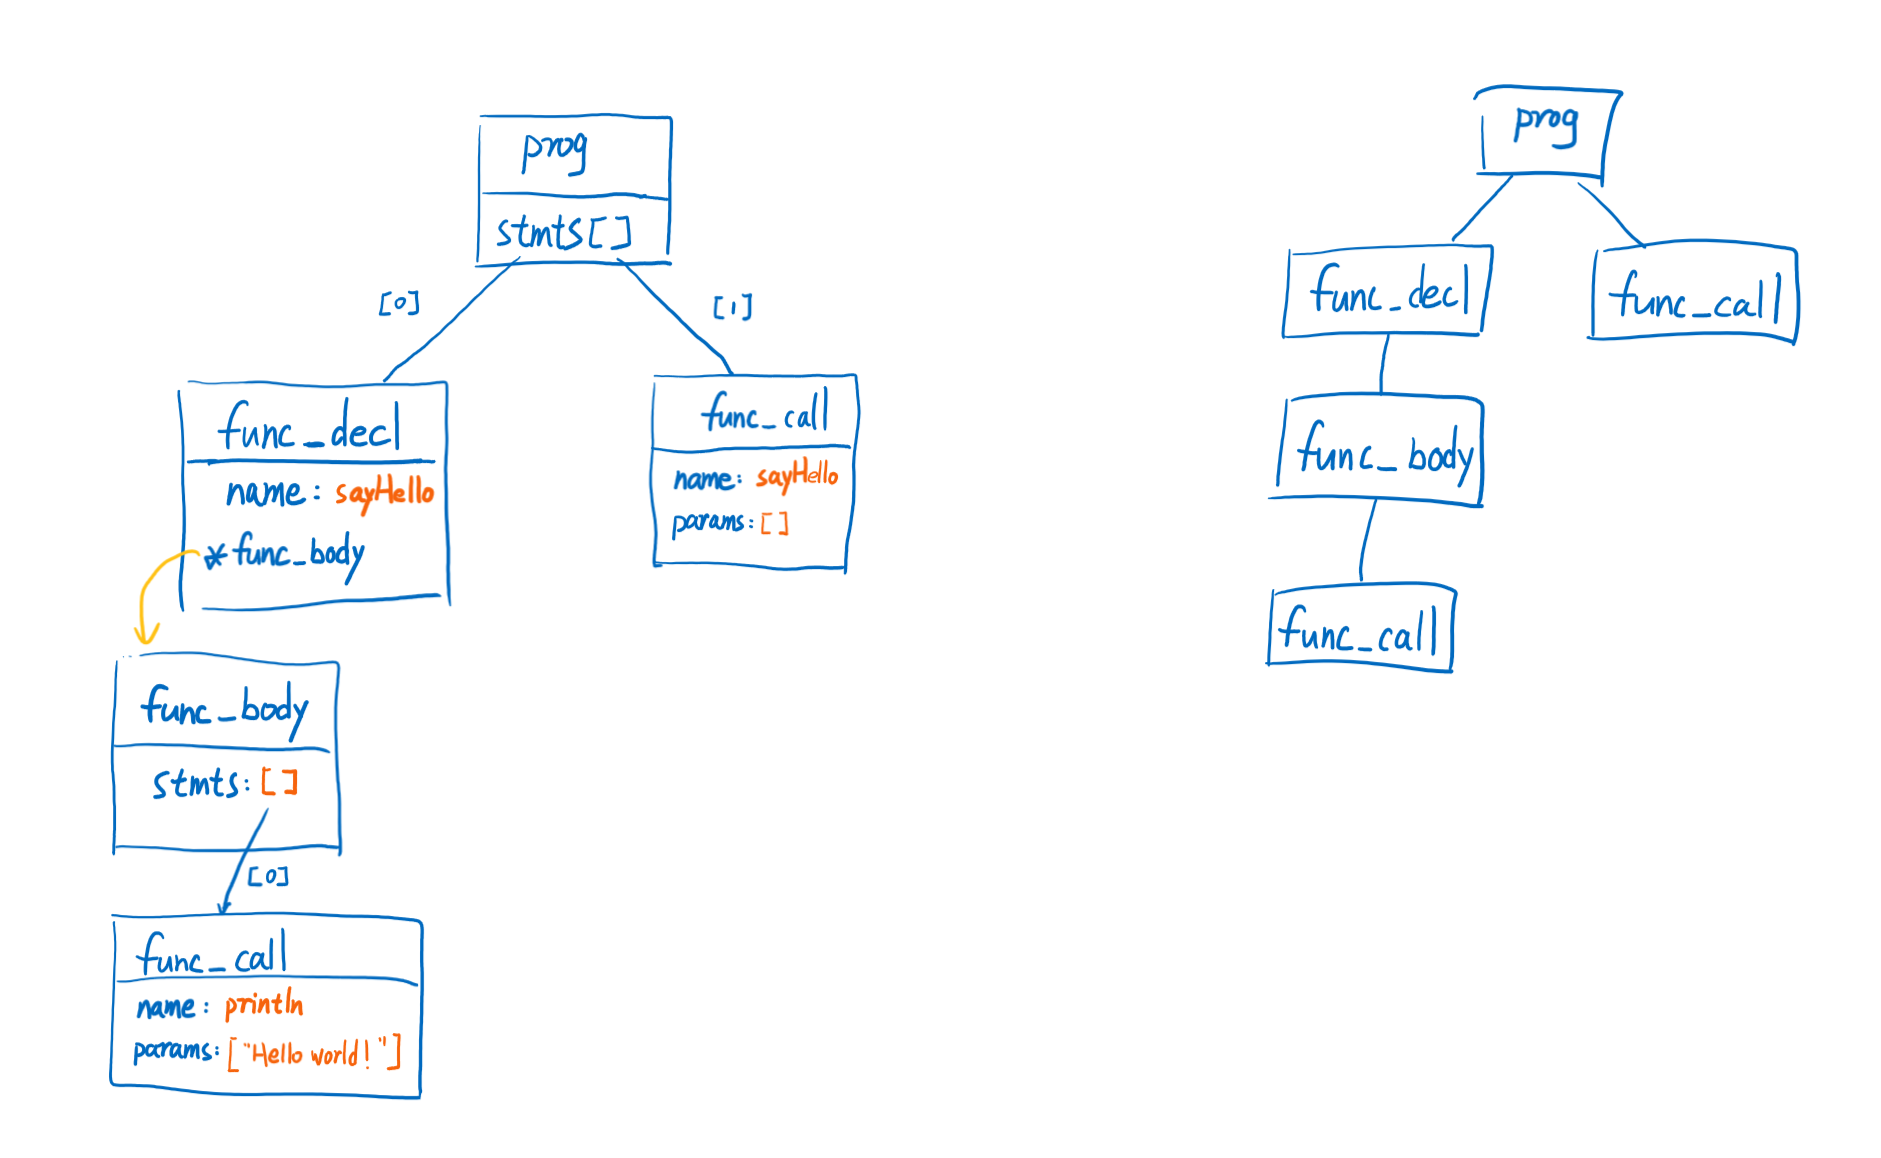 prog
stmts[]
[0]
[1]
func_decl
name: sayHello
*func_body
func_call
name: sayHello
params: []
func_body
stmts: []
[0]
func_call
name: println
params: ["Hello world!"]
prog
func_decl
func_call
func_body
func_call